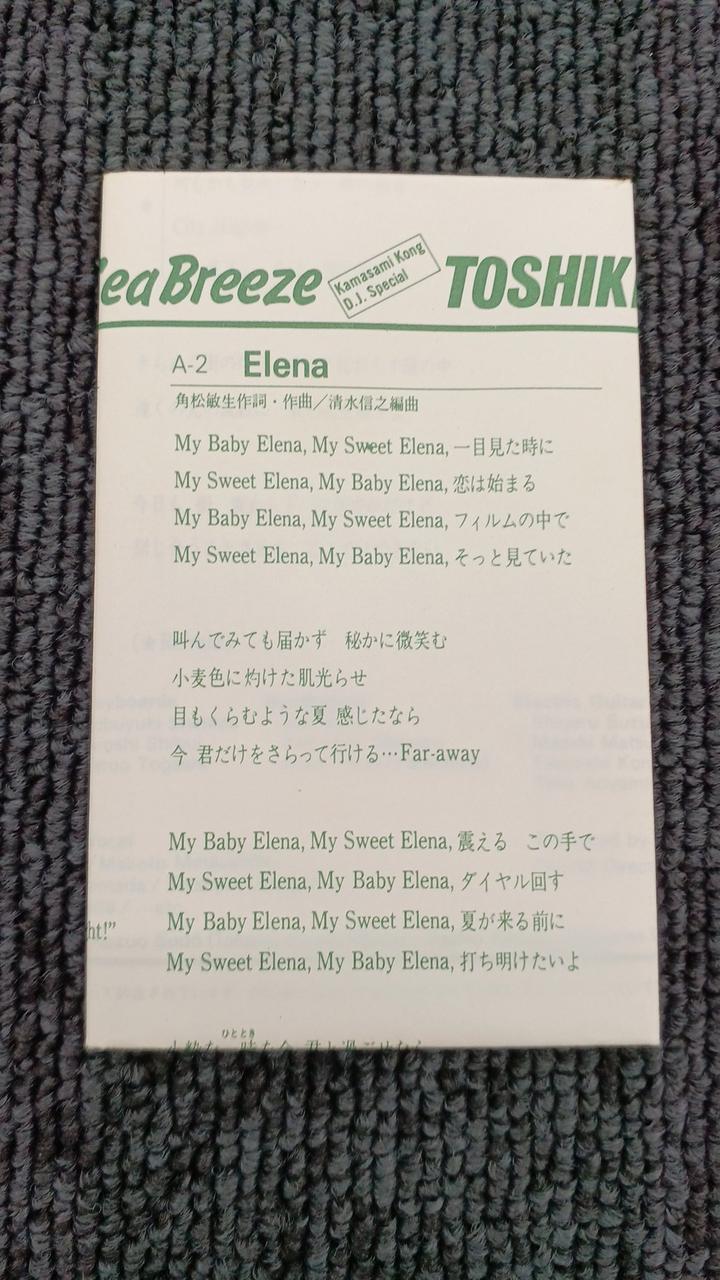 ea Breeze
Kamasami Kong
D.J. Special
TOSHIK
A-2 Elena
角松敏生作詞・作曲／清水信之編曲
My Baby Elena, My Sweet Elena, 一目見た時に
My Sweet Elena, My Baby Elena, 恋は始まる
My Baby Elena, My Sweet Elena, フィルムの中で
My Sweet Elena, My Baby Elena, そっと見ていた
叫んでみても届かず 秘かに微笑む
小麦色に灼けた肌光らせ
目もくらむような夏 感じたなら
今 君だけをさらって行ける…Far-away
My Baby Elena, My Sweet Elena, 震える この手で
My Sweet Elena, My Baby Elena, ダイヤル回す
My Baby Elena, My Sweet Elena, 夏が来る前に
ht!”
My Sweet Elena, My Baby Elena, 打ち明けたいよ
ひととき